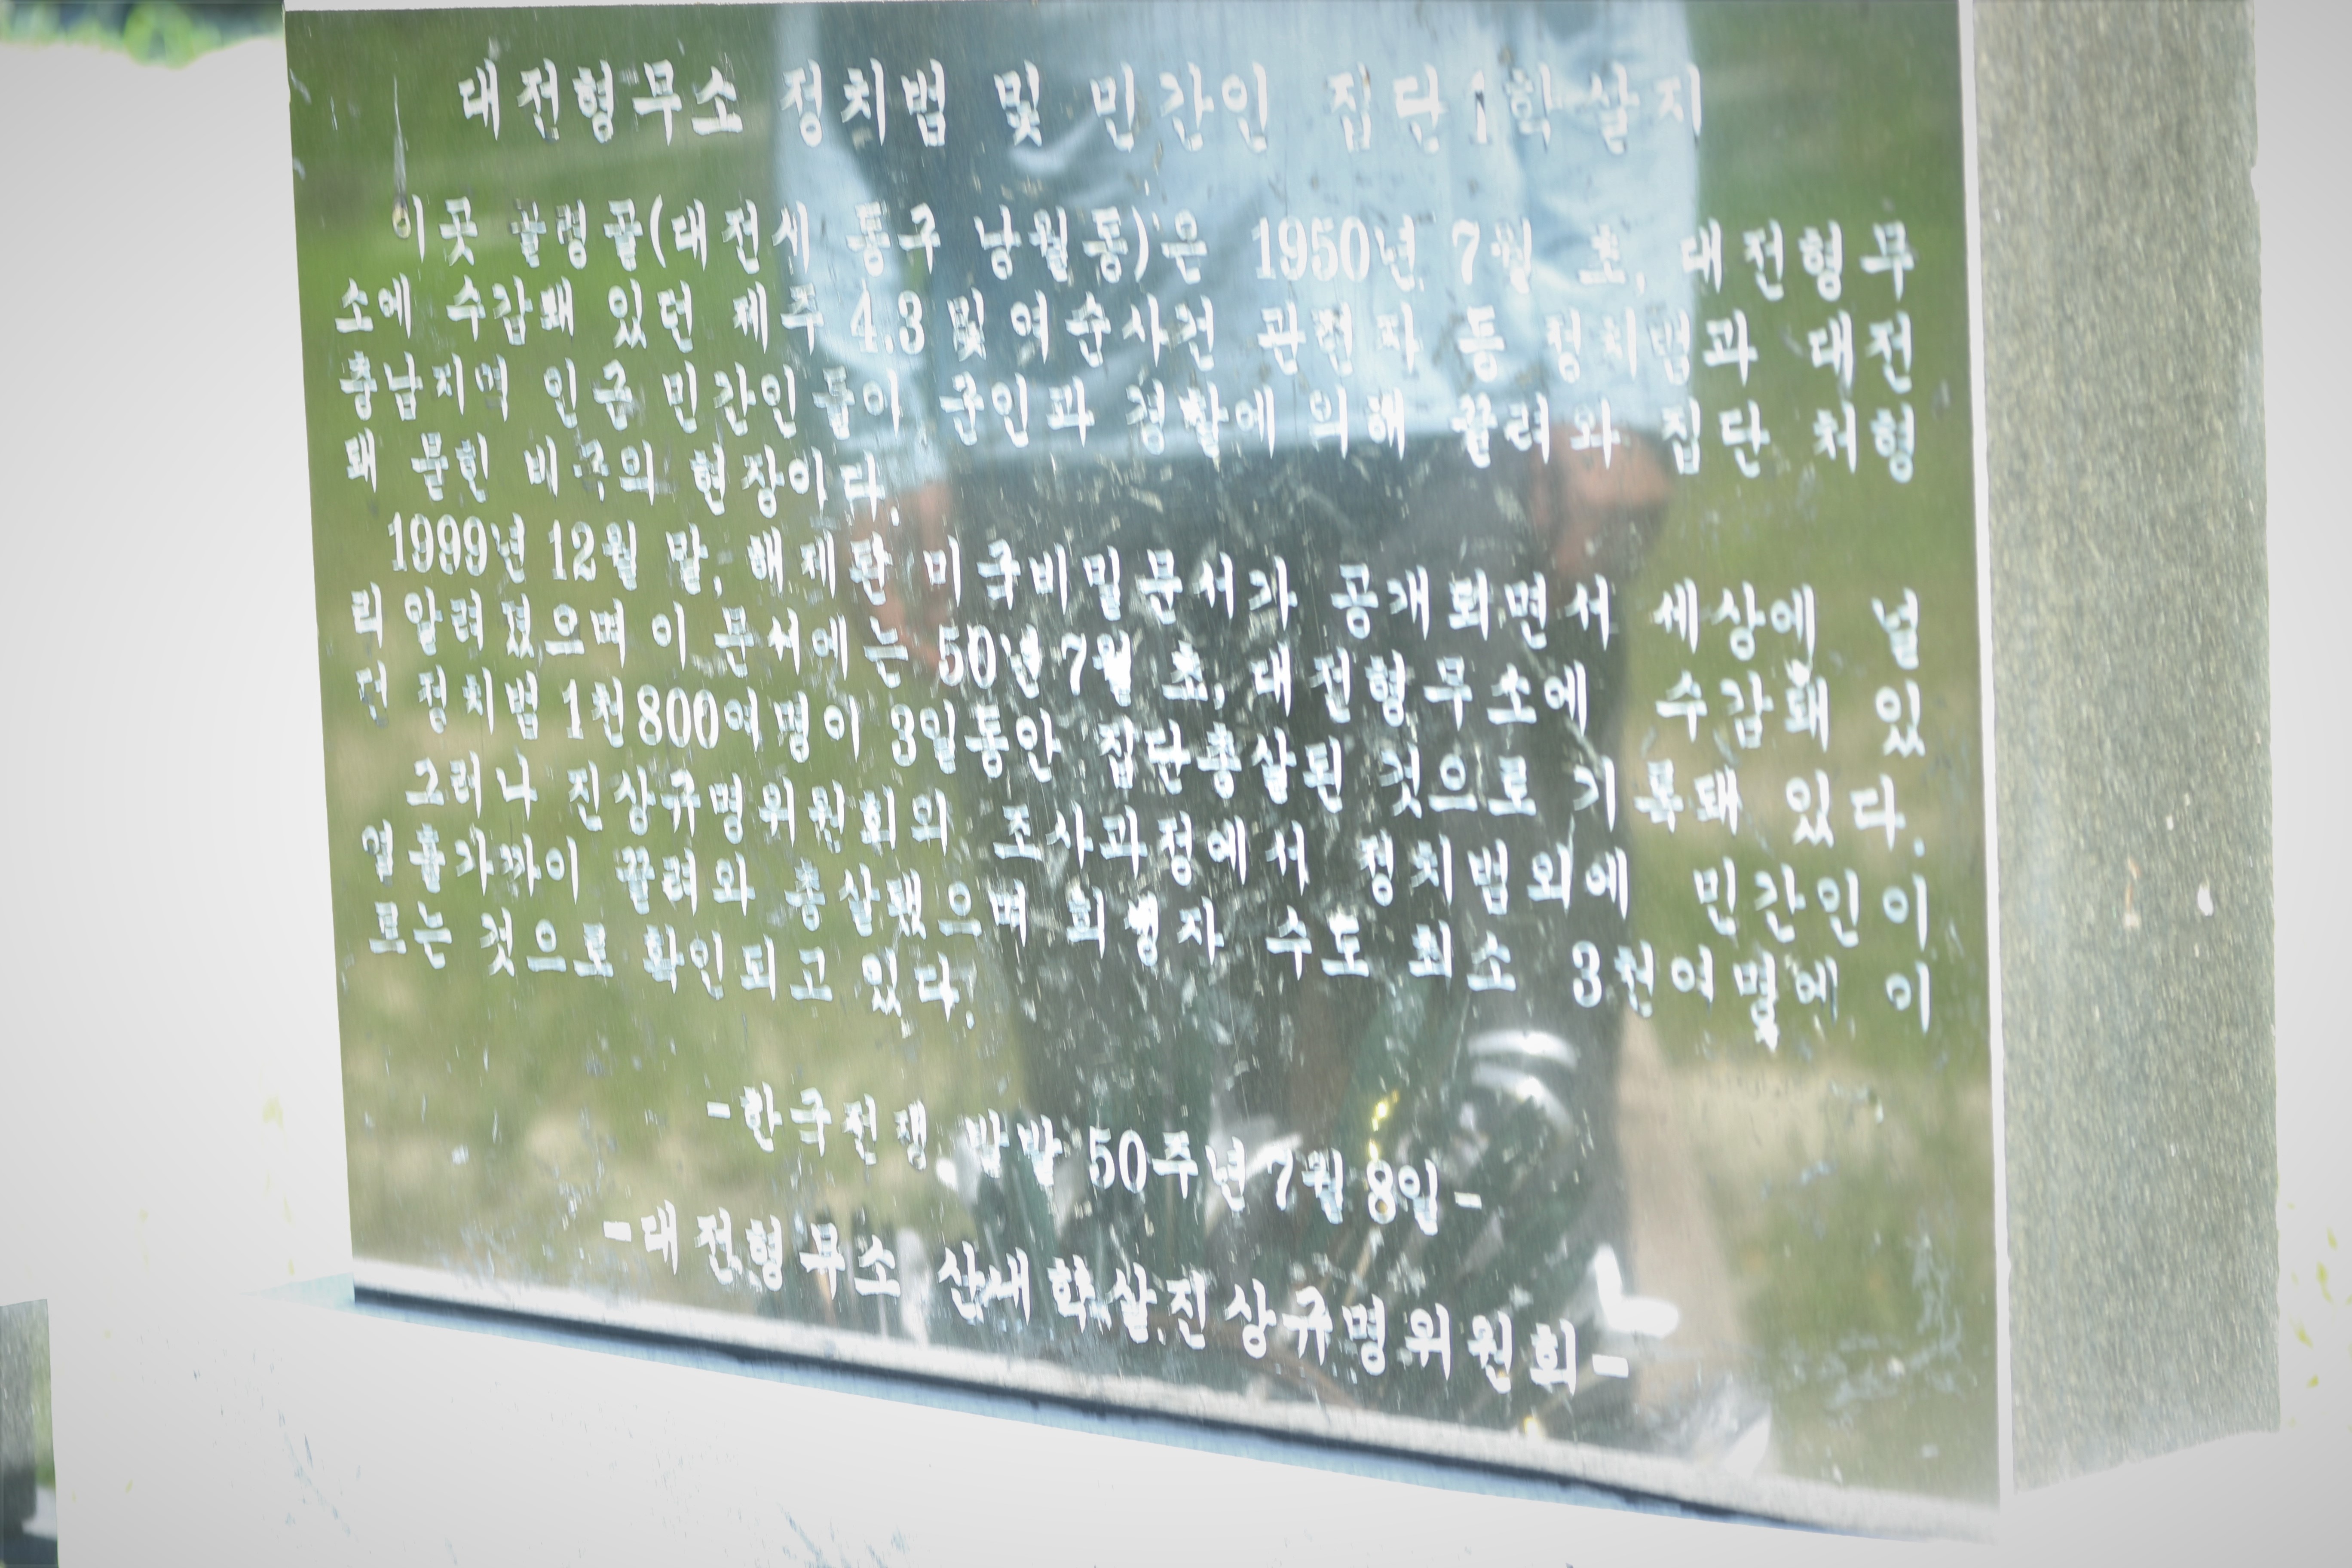 대전형무소 정치범 및 민간인 집단 학살지
이곳 골령골(대전시 동구 낭월동)은 1950년 7월 초, 대전형무
소에 수감돼 있던 제주 4.3 및 여순사건 관련자 등 정치범과 대전
충남지역 인근 민간인들이 군인과 경찰에 의해 끌려와 집단 처형
돼 묻힌 비극의 현장이다.
1999년 12월 말, 해제된 미국비밀문서가 공개되면서 세상에 널
리 알려졌으며 이 문서에는 50년 7월 초, 대전형무소에 수감돼 있
던 정치범 1천800여명이 3일동안 집단총살된 것으로 기록돼 있다.
그러나 진상규명위원회의 조사과정에서 정치범외에 민간인이
열흘가까이 끌려와 총살됐으며 희생자 수도 최소 3천여명에 이
르는 것으로 확인되고 있다.
-한국전쟁 발발 50주년 7월 8일-
-대전형무소 산내학살진상규명위원회-